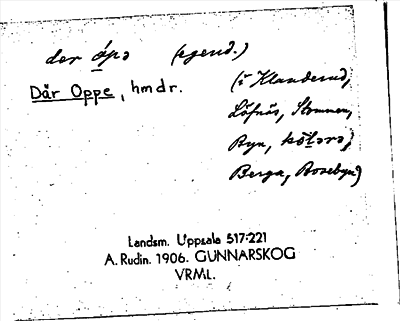 dar åpə (egend.)
Där Oppe, hmdr.
(i Klanderud,
Löfnäs, Stommen,
Byn, kölərə,
Berga, Bosebyn)
Landsm. Uppsala 517:221
A. Rudin. 1906. GUNNARSKOG
VRML.